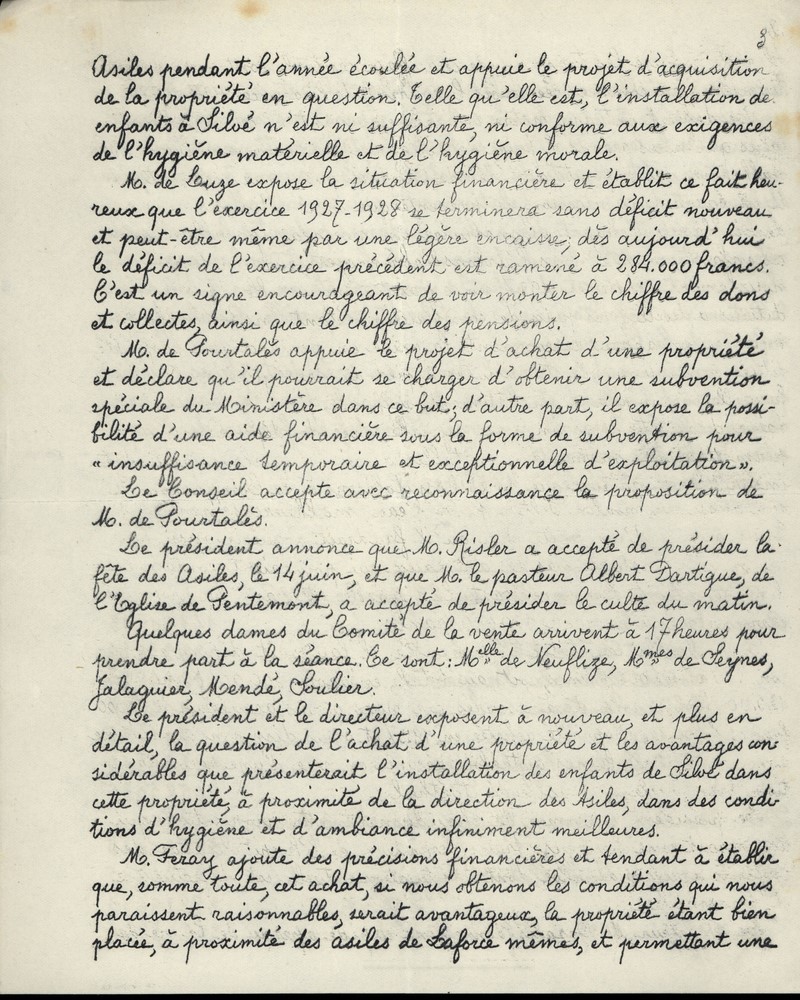 3
Asiles pendant l'année écoulée et appuie le projet d'acquisition
de la propriété en question. Telle qu'elle est, l'installation de
enfants à Siloé n'est ni suffisante, ni conforme aux exigences
de l'hygiène matérielle et de l'hygiène morale.
M. de Luze expose la situation financière et établit ce fait heu-
reux que l'exercice 1927-1928 se terminera sans déficit nouveau
et peut-être même par une légère encaisse; dès aujourd'hui
le déficit de l'exercice précédent est ramené à 284.000 francs.
C'est un signe encourageant de voir monter le chiffre des dons
et collectes, ainsi que le chiffre des pensions.
M. de Pourtalès appuie le projet d'achat d'une propriété
et déclare qu'il pourrait se charger d'obtenir une subvention
spéciale du Ministère dans ce but; d'autre part, il expose la possi-
bilité d'une aide financière sous la forme de subvention pour
« insuffisance temporaire et exceptionnelle d'exploitation ».
Le Conseil accepte avec reconnaissance la proposition de
M. de Pourtalès.
Le président annonce que M. Risler a accepté de présider la
fête des Asiles, le 14 juin, et que M. le pasteur Albert Dartigue, de
l'Eglise de Pentemont, a accepté de présider le culte du matin.
Quelques dames du Comité de la vente arrivent à 17 heures pour
prendre part à la séance. Ce sont: Melle de Neuflize, Mmes de Seynes,
Jalaguier, Mendé, Soulier.
Le président et le directeur exposent à nouveau, et plus en
détail, la question de l'achat d'une propriété et les avantages con-
sidérables que présenterait l'installation des enfants de Siloé dans
cette propriété, à proximité de la direction des Asiles, dans des condi-
tions d'hygiène et d'ambiance infiniment meilleures.
M. Feray ajoute des précisions financières et tendant à établir
que, somme toute, cet achat, si nous obtenons les conditions qui nous
paraissent raisonnables, serait avantageux, la propriété étant bien
placée, à proximité des asiles de Laforce mêmes, et permettant une